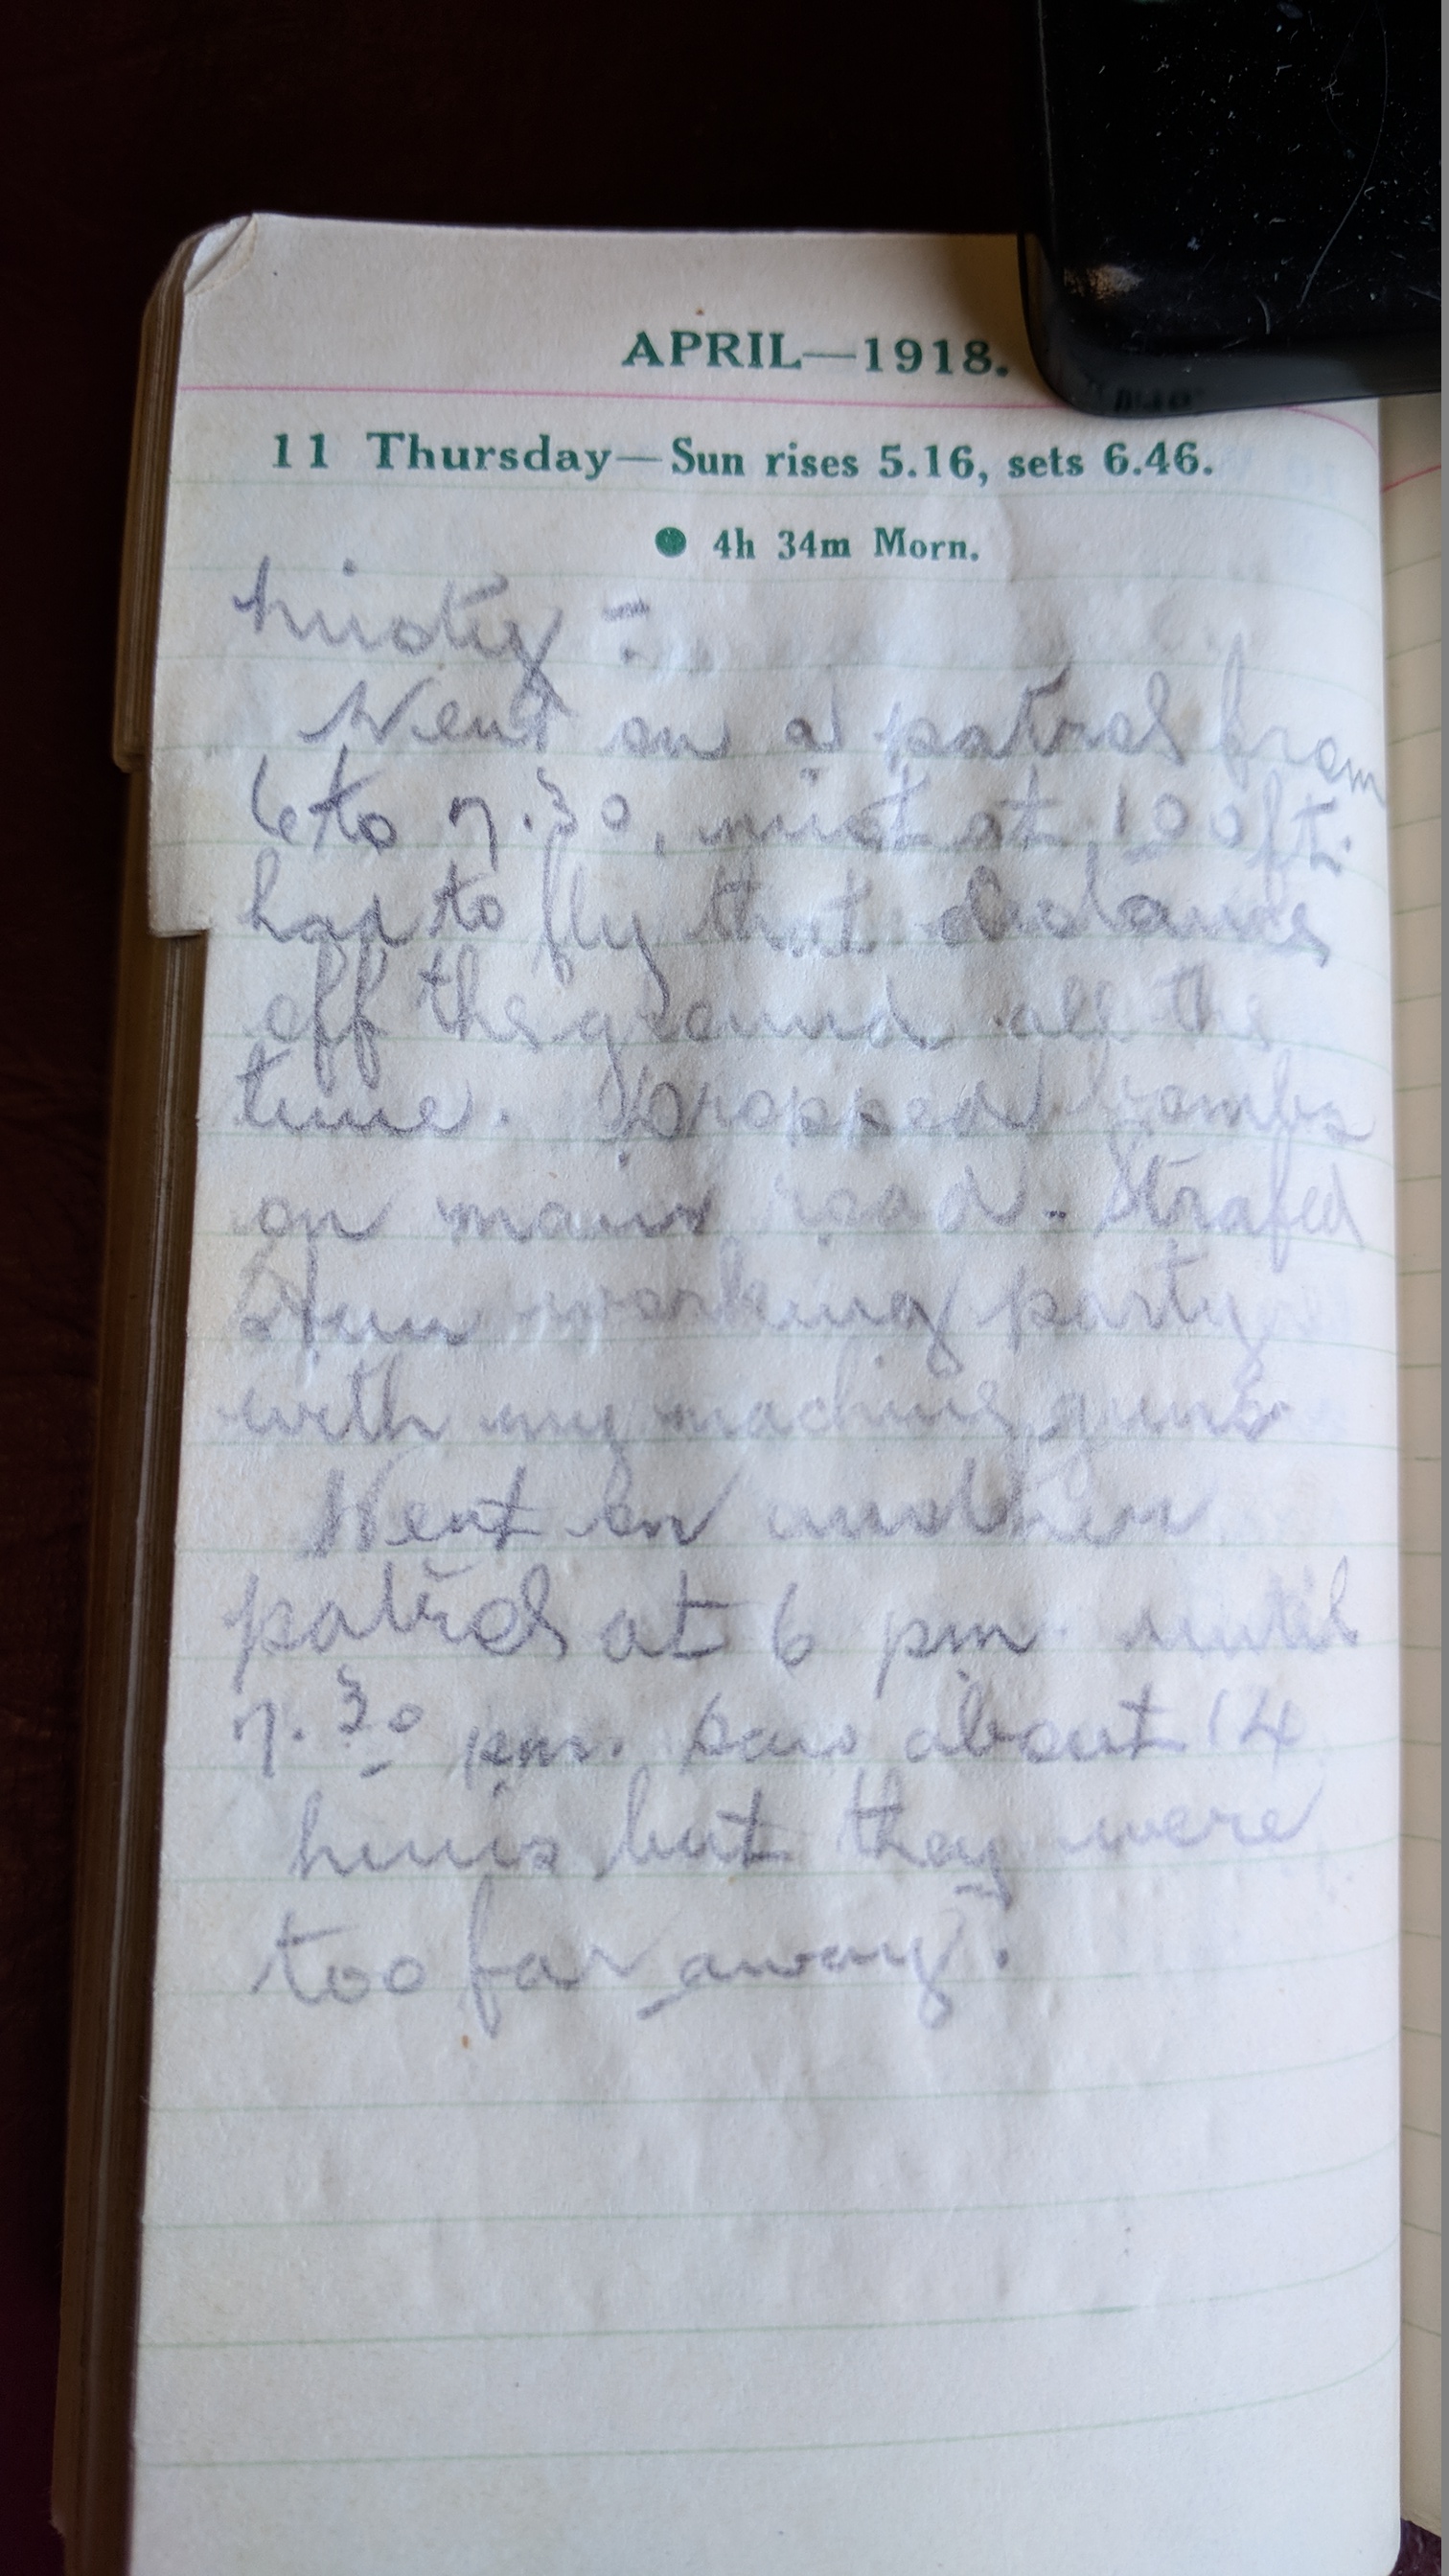 APRIL—1918.
11 Thursday—Sun rises 5.16, sets 6.46.
● 4h 34m Morn.
Misty :-
Went on a patrol from
6 to 7.30, mist at 100ft.
had to fly that distance
off the ground all the
time. Dropped bombs
on main road. Strafed
Hun working party
with my machine guns
Went on another
patrol at 6 pm until
7.30 pm. Saw about 14
huns but they were
too far away.